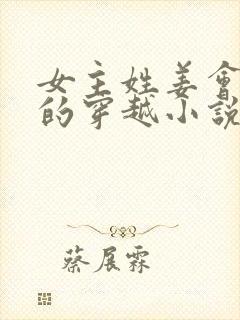 女主姓姜會
的穿越小說
蔡展霖